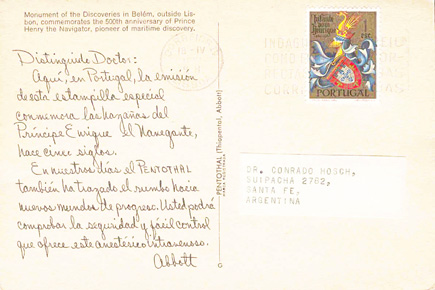 Monument of the Discoveries in Belém, outside Lis-
bon, commemorates the 500th anniversary of Prince
Henry the Navigator, pioneer of maritime discovery.
Distinguido Doctor:
Aquí, en Portugal, la emisión
de esta estampilla especial
conmemora las hazañas del
Príncipe Enrique el Navegante,
hace cinco siglos.
En nuestros días el PENTOTHAL
también ha trazado el rumbo hacia
nuevos mundos de progreso. Usted podrá
comprobar la seguridad y fácil control
que ofrece este anestésico intravenoso.
Abbott
PENTOTHAL (Thiopental, Abbott)
PORTUGAL
DR. CONRADO HOSCH,
SUIPACHA 2762,
SANTA FE,
ARGENTINA